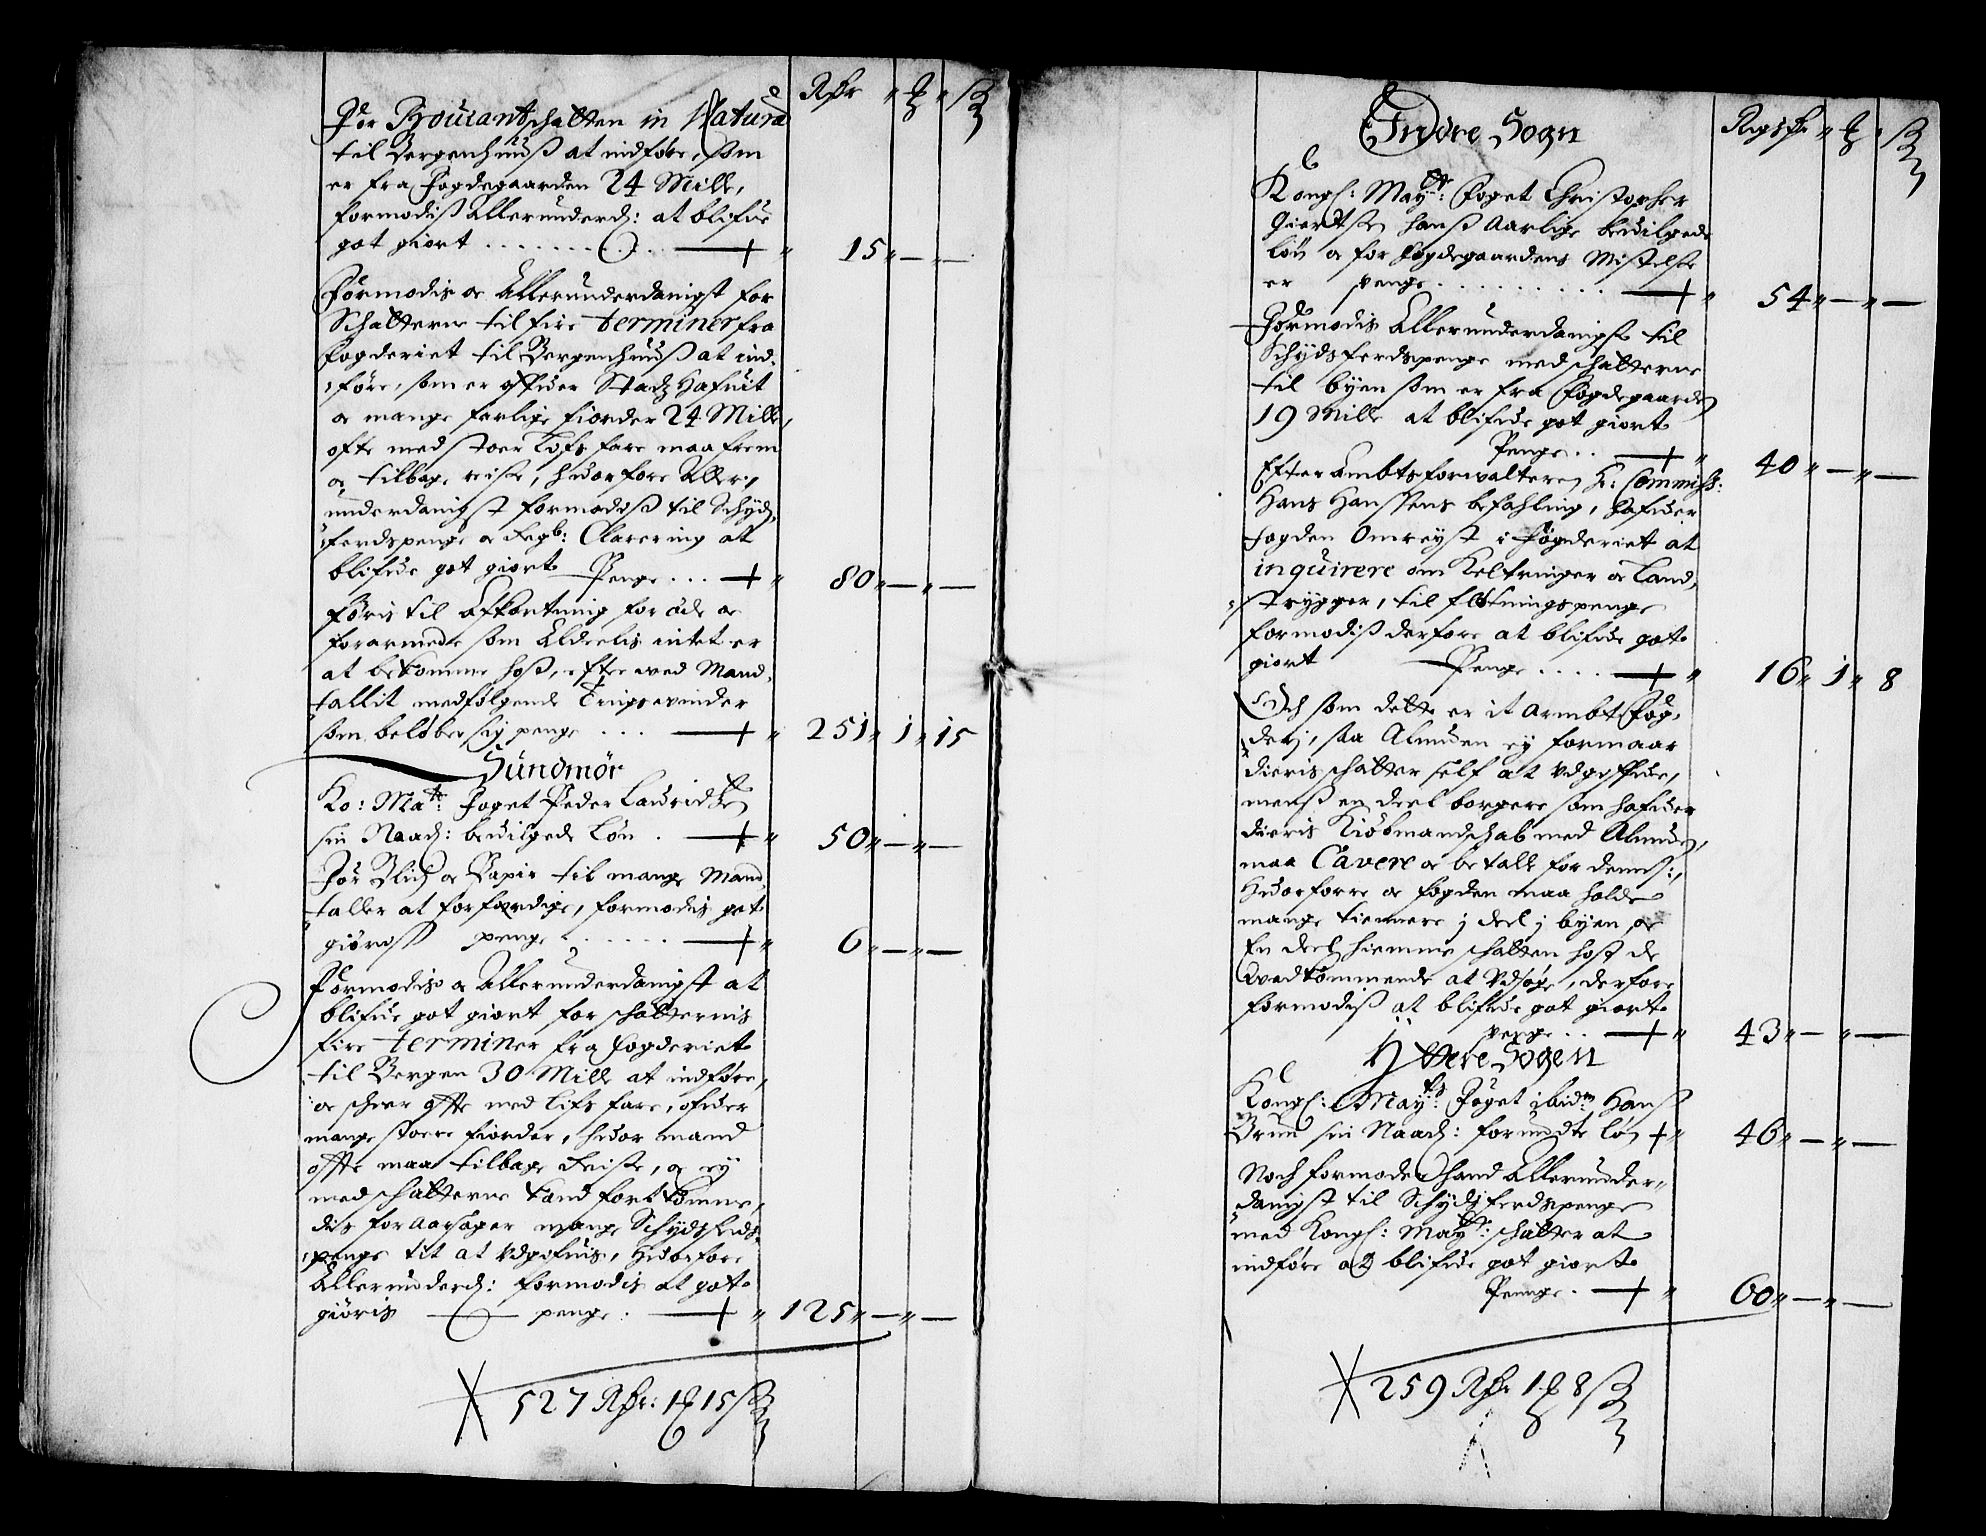 Rdr " ꝑ " ß
For Proviantschatten in Natura
til Bergenhuuß at indføre, som
er fra Fogdegaarden 24 Mille,
formodiß Allerunderd: at blifue
got giort . . . . . . . . . 15 " — " —
Formodis oc Allerunderdanigst for
Schatterne til fire terminer fra
fogderiet til Bergenhuuß at ind-
føre, som er offuer Stadz Hafuit
oc mange farlige fiorder 24 Mille,
ofte med stoer Lifs fare maa frem
oc tilbage reise, huorfore Aller-
underdanigst formodiß til Schyds
ferdspenge oc Regb: Clarering at
blifue got giort Penge . . . 80 " — " —
Føris til Afkortning for øde oc
forarmede som Aldeelis intet er
at bekomme hoß, efter ved Mand-
tallit medfølgende Tingsvinder
som beløber sig penge . . . 251 " 1 " 15
Sundmør
Ko: Matz: Foget Peder Lauridtzen
sin Naad: beuilgede Løn . 50 " — " —
For Blich oc Papir til mange Mand-
taller at forfærdige, formodis got
giøris penge . . . . . . 6 " — " —
Formodis oc Allerunderdanigst at
blifue got giort for schatternis
fire terminer fra fogderiet
til Bergen 30 Mille at indføre,
oc scheer offte med Lifs fare, ofuer
mange stoere fiorder, huor mand
offte maa tilbage Reise, oc ey
med schatterne kand fort komme,
dis foraarsager mange Schydsferds-
penge tit at udgifuis, huorfore
Allerunderd: formodis at got
giøris penge . 125 " — " —
527 Rdr: 1 ꝑ 15 ß
Indre Sogn
Rigsdr " ꝑ " ß
Kongl: Mayts: Foget Christopher
Giertsen hans Aarlige beuilgede
løn oc for fogdegaardens Mistelse
er penge . . . . . . . . . 54 " — " —
Formodis Allerunderdanigst til
Schydsferdspenge med schatterne
til byen som er fra Fogdegaarden
19 Mille at blifue got giort
Penge . . 40 " — " —
Efter Ambtsforvalteren Hr: Commiss:
Hans Hanssens befahling, hafuer
fogden Omreyst i fogderiet at
inquirere om Keltringer oc Land-
strygger, til flötningspenge
formodiß derfore at blifue got
giort Penge . . . . 16 " 1 " 8
Och som dette er it Armbt Fog-
derj, saa Almuen ey formaar
dieris schatter self at udgiffue,
menß en deel borgere som hafuer
dieris Kiøbmandschab med Almuen,
maa Cavere oc betale for dennem:,
huorforre oc fogden maa holde
mange tiennere j deel j byen, oc
En deel hiemme schatten hoß de
Uvedkommende at Udsøge, derfore
formodiß at blifue got giort
penge . . 43 " — " —
Yttere Sogen
Kongl: Mayts: Foget ibid: Hans
Bruun sin Naad: forundte løn 46 " — " —
Noch formoder hand Allerunder-
danigst til Schydsferdspenge
med Kongl: Mayts: schatter at
indføre at blifue got giort
Penge . 60 " — " —
259 Rdr 1 ꝑ 8 ß